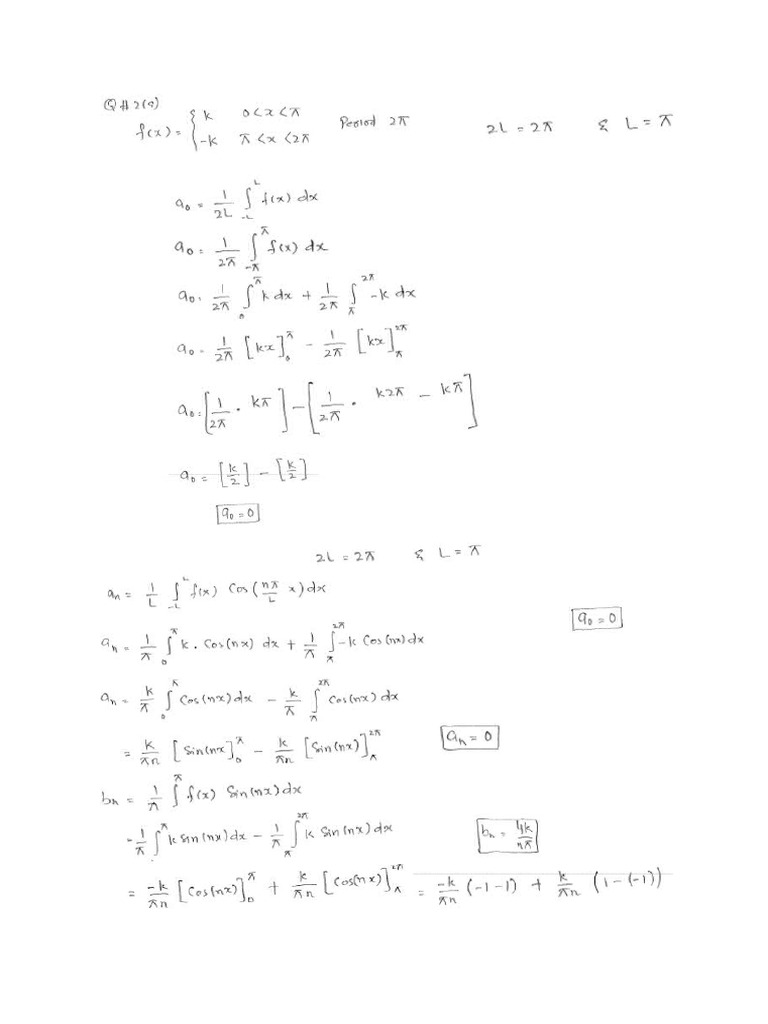 Q#2(a)
f(x) = { k 0<x<π
-k π<x<2π Period 2π 2L = 2π & L = π
a₀ = 1/2L ∫_{-L}^{L} f(x) dx
a₀ = 1/2π ∫_{-π}^{π} f(x) dx
a₀ = 1/2π ∫_0^π k dx + 1/2π ∫_π^{2π} -k dx
a₀ = 1/2π [kx]_0^π - 1/2π [kx]_π^{2π}
a₀ = [1/2π · kπ] - [1/2π · k2π - kπ]
a₀ = [k/2] - [k/2]
a₀ = 0
2L = 2π & L = π
aₙ = 1/L ∫_{-L}^{L} f(x) Cos(nπ/L x) dx
a₀ = 0
aₙ = 1/π ∫_0^π k. Cos(nx) dx + 1/π ∫_π^{2π} -k Cos(nx) dx
aₙ = k/π ∫_0^π Cos(nx) dx - k/π ∫_π^{2π} Cos(nx) dx
= k/πn [Sin(nx]_0^π - k/πn [Sin(nx)]_π^{2π} aₙ = 0
bₙ = 1/π ∫^π f(x) Sin(nx) dx
= 1/π ∫_0^π k Sin(nx) dx - 1/π ∫_π^{2π} k Sin(nx) dx bₙ = 4k/nπ
= -k/πn [Cos(nx)]_0^π + k/πn [Cos(nx)]_π^{2π} = -k/πn (-1-1) + k/πn (1-(-1))